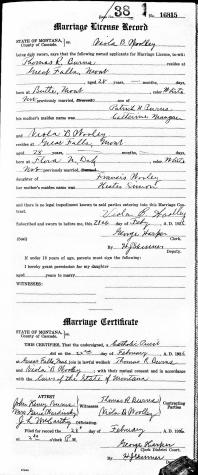 38 1 No. 16815
Marriage License Record
STATE OF MONTANA,
County of Cascade. Viola B Woolley
being duly sworn, says that the following named applicants for Marriage License, to-wit:
Thomas R. Burns resides at
Great Falls, Mont
aged 28 years, months, days
born at Butte, Mont color White
Not previously married, son of
Patrick H Burns
his mother's maiden name was
and
Viola B Wooley resides at
Great Falls, Mont
aged 28 years, months, days
born at Flora N. Dak color White
Not previously married, daughter of
Francis Wooley
her mother's maiden name was Hester Simon
and there is no legal impediment known to said parties entering into this Marriage Contract.
Viola B. Woolley
Subscribed and sworn to before me, this 21st day of Feby A. D. 192
George Harper
(Seal) Clerk.
By H J Skinner Deputy
If under 18 years of age, parents must sign the following:
I hereby grant permission for my daughter
aged years to be married.
WITNESSES:
Marriage Certificate
STATE OF MONTANA,
County of Cascade.
THIS CERTIFIES, That the undersigned, a Catholic Priest
did on the 22nd day of February A. D. 192
at Great Falls, Mont. join in lawful wedlock Thomas R Burns
and Viola B Woolley with their mutual consent and in accordance with
the laws of the State of Montana
Attest:
John Henry Burns Witnesses Thomas R Burns Contracting
Viola B Woolley Parties
J. L. McCarthy
Filed for record the day of February A. D. 192
at o'clock P. M.
George Harper
Clerk District Court.
By H J Skinner Deputy